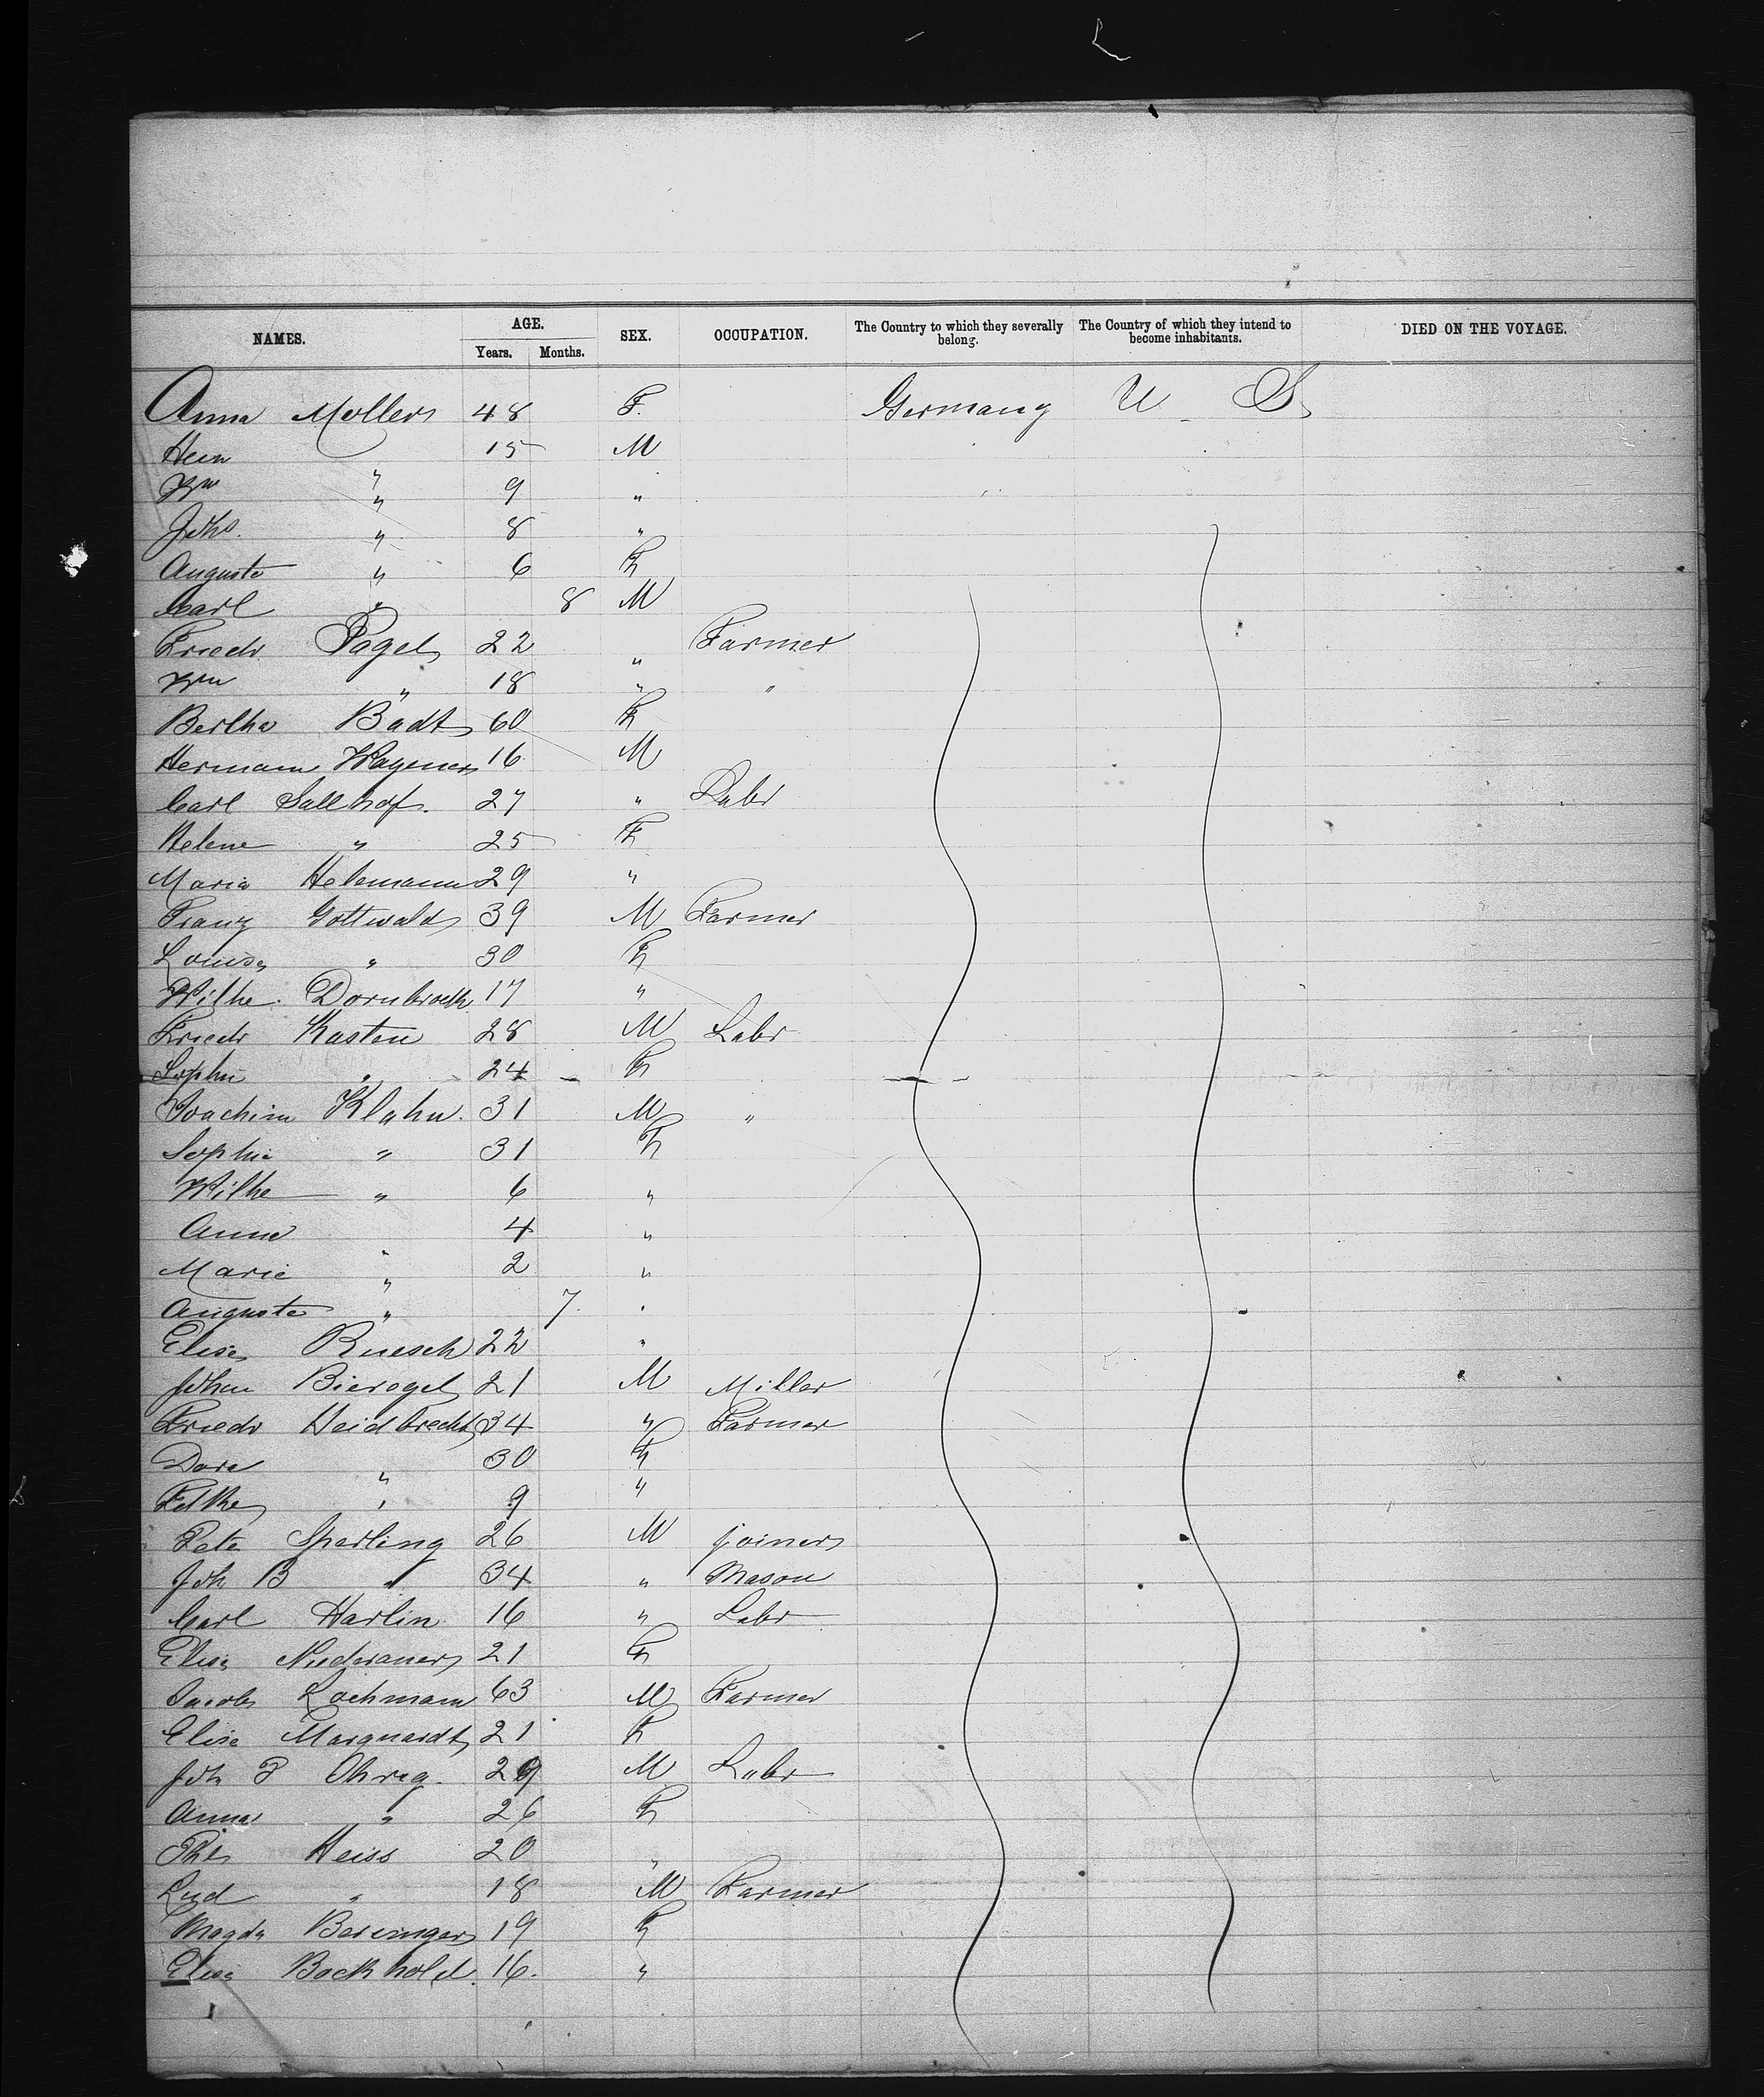 NAMES. AGE. SEX. OCCUPATION. The Country to which they severally belong. The Country of which they intend to become inhabitants. DIED ON THE VOYAGE.
Years. Months.
Anna Mollers 48 F. Germany U S
Hein " 15 M
Wm " 9 "
Johs. " 8 "
Auguste " 6 F
Carl " 8 M
Friedr Pagel 22 " Farmer
Wm " 18 " "
Bertha Badt 60 F
Hermann Wagener 16 M
Carl Sallhof. 27 " Labr
Helene " 25 F
Maria Helemann 29 "
Franz Gottwald 39 M Farmer
Louise " 30 F
Wilhe. Dornbrock 17 "
Friedr Kasten 28 M Labr
Sophie " 24 F
Joachim Klahn. 31 M "
Sophie " 31 F
Wilhe " 6 "
Anna " 4 "
Marie " 2 "
Auguste " 7. "
Elise Ruesch 22 "
Johan Bierogel 21 M Miller
Friedr Heidbrecht 34 " Farmer
Dora " 30 F
" 9 "
Pete Sperling 26 M joiner
Joh B " 34 " Mason
Carl Harlin 16 " Labr
Elise 21 F
Jacob Lochmann 63 M Farmer
Elise Marquardt 21 F
Joh P Ohreg. 29 M Labr
Anna " 26 F
Heiss 20 "
Lud " 18 M Farmer
Magda Beringer 19 F
Elise Bockhold. 16. "